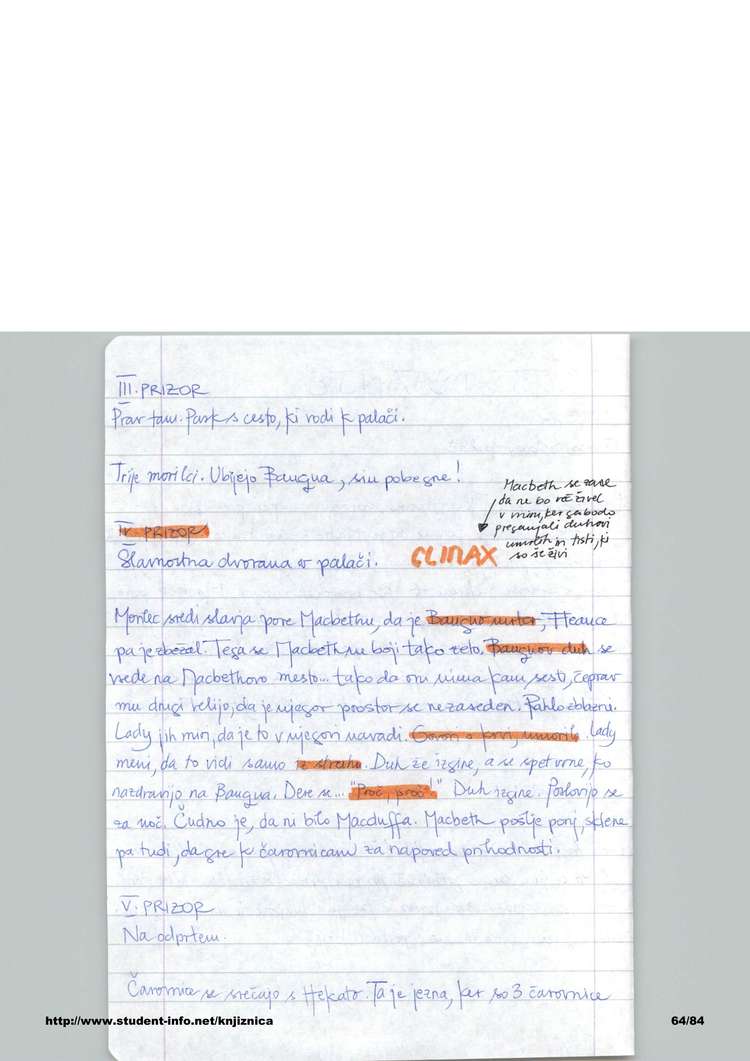 III. PRIZOR
Prav tam. Park s cesto, ki vodi k palači.
Trije morilci. Ubijejo Banqua, sin pobegne!
Macbeth se zave
da ne bo več živel
v miru, ker ga bodo
preganjali duhovi
umrlih in tisti, ki
so še živi
IV. PRIZOR
Slavnostna dvorana v palači.
CLIMAX
Morilec sredi slavja pove Macbethu, da je Banquo mrtev, Fleance
pa je zbežal. Tega se Macbeth ne boji tako zelo. Banquov duh se
vsede na Macbethovo mesto... tako da oni nima kam sesti, čeprav
mu drugi velijo, da je njegov prostor še nezaseden. Rahlo zblazni.
Lady jih miri, da je to v njegovi navadi. Govori o krvi, umorih. Lady
meni, da to vidi samo iz strahu. Duh že izgine, a se spet vrne, ko
nazdravijo na Banqua. Dere se... "Proč, proč!" Duh izgine. Poslovijo se
za noč. Čudno je, da ni bilo Macduffa. Macbeth pošlje ponj, sklene
pa tudi, da gre k čarovnicam za napoved prihodnosti.
V. PRIZOR
Na odprtem.
Čarovnice se srečajo s Hekato. Ta je jezna, ker so 3 čarovnice
http://www.student-info.net/knjiznica
64/84